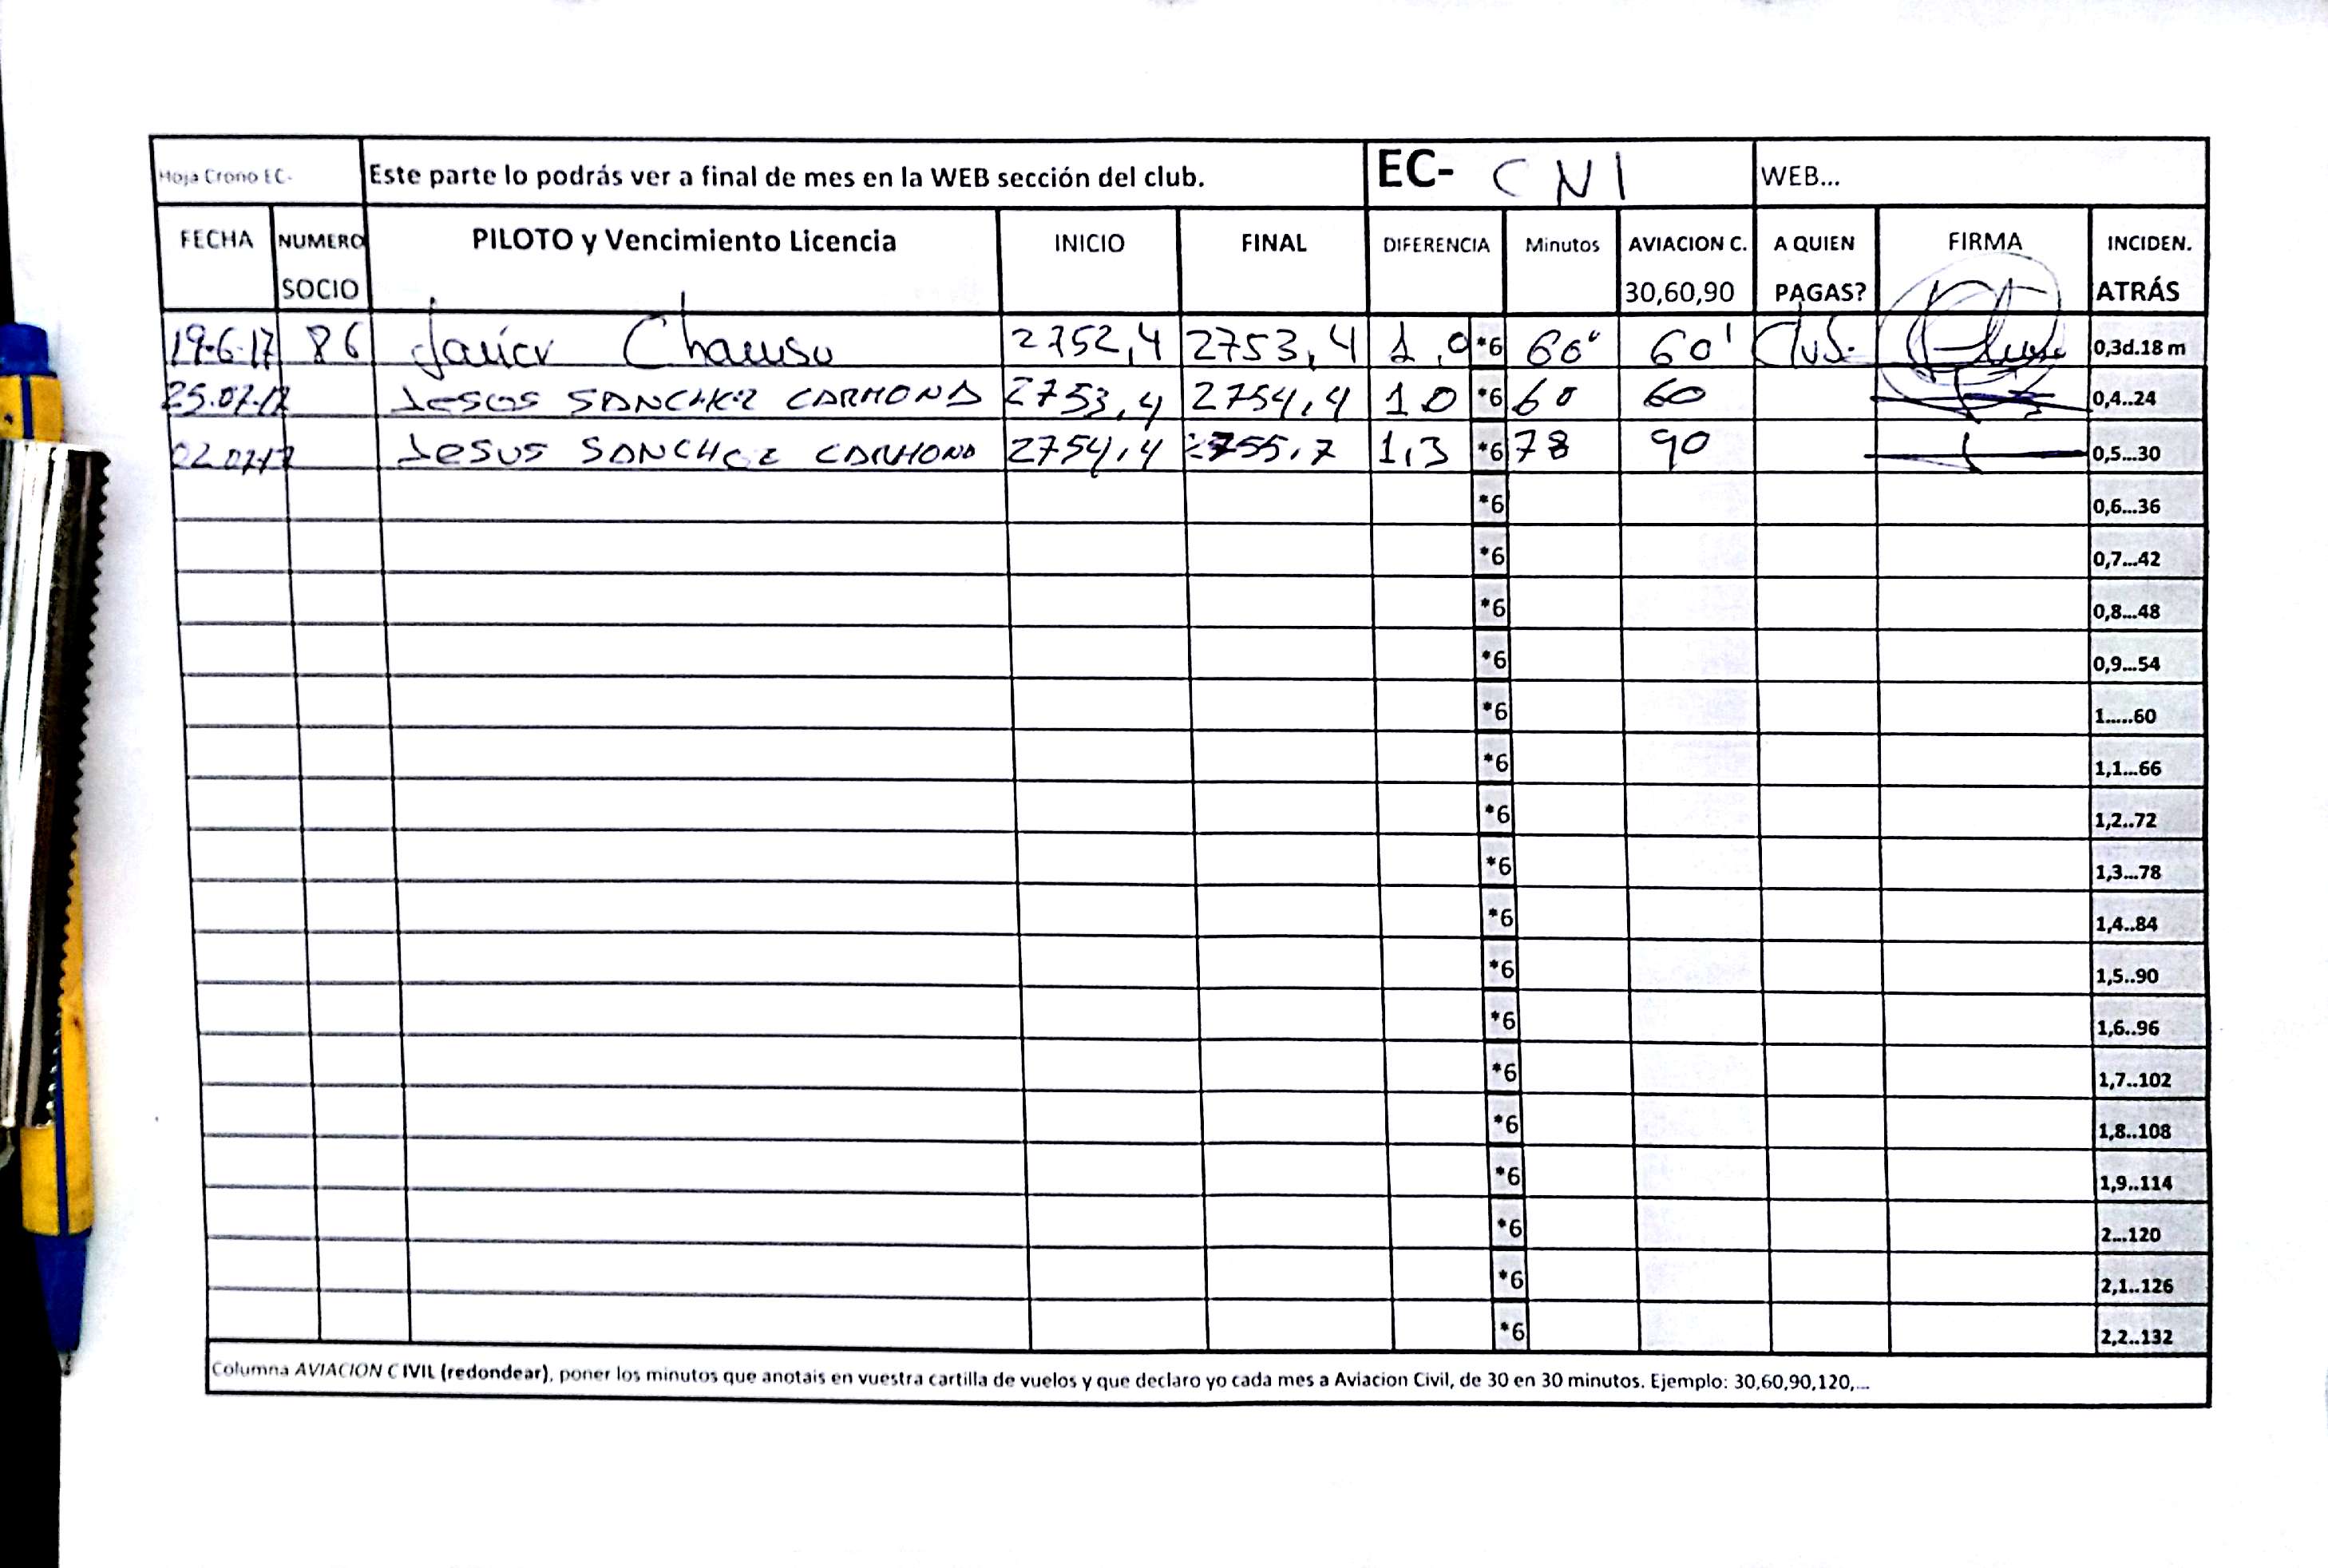 Hoja Crono EC- Este parte lo podrás ver a final de mes en la WEB sección del club. EC- CNI WEB...
FECHA NUMERO SOCIO PILOTO y Vencimiento Licencia INICIO FINAL DIFERENCIA Minutos AVIACION C. 30,60,90 A QUIEN PAGAS? FIRMA INCIDEN. ATRÁS
19-6-17 86 Javier 2752,4 2753,4 1,0 *6 60 60' Club. 0,3d.18 m
25.07.17 JESUS SANCHEZ CARMONA 2753,4 2754,4 10 *6 60 60 0,4..24
02.07.17 JESUS SANCHEZ CARMONA 2754,4 2755,7 1,3 *6 78 90 0,5...30
*6 0,6...36
*6 0,7...42
*6 0,8...48
*6 0,9...54
*6 1.....60
*6 1,1...66
*6 1,2..72
*6 1,3...78
*6 1,4..84
*6 1,5..90
*6 1,6..96
*6 1,7..102
*6 1,8..108
*6 1,9..114
*6 2...120
*6 2,1..126
*6 2,2..132
Columna AVIACION CIVIL (redondear), poner los minutos que anotais en vuestra cartilla de vuelos y que declaro yo cada mes a Aviacion Civil, de 30 en 30 minutos. Ejemplo: 30,60,90,120,...